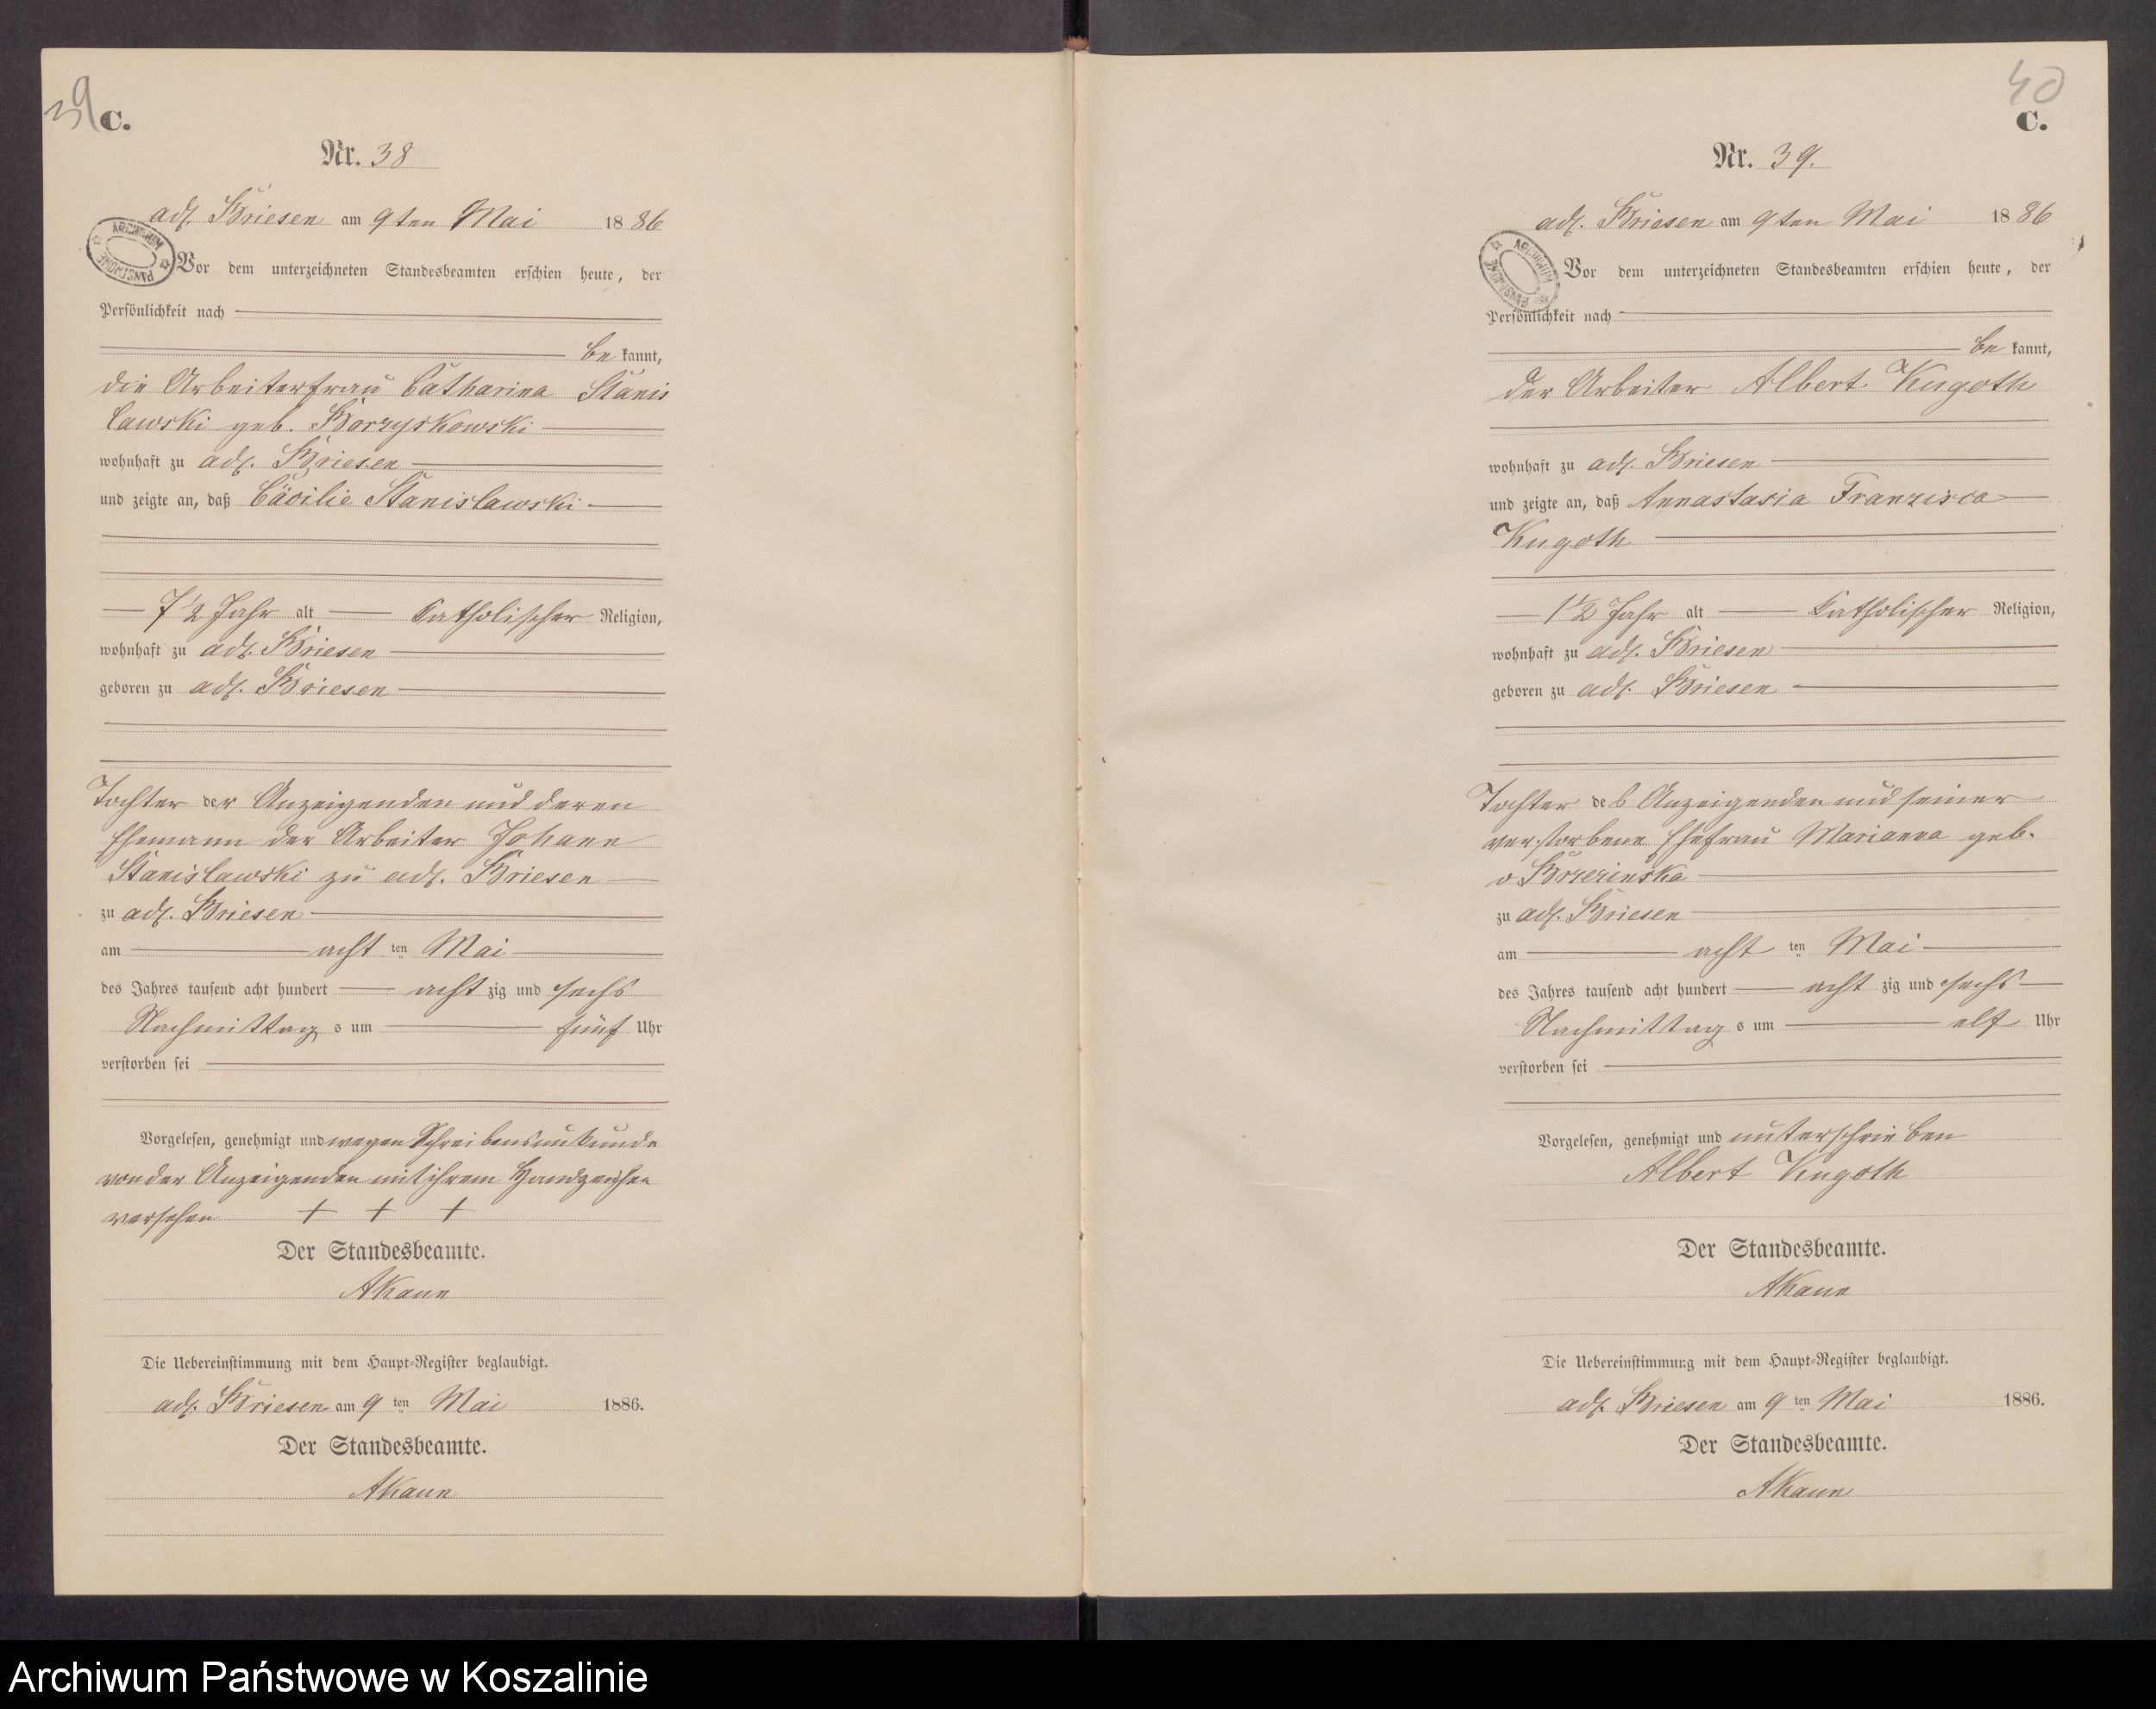 39
C.
Nr. 38
adl. Briesen am 9ten Mai 1886
ARCHIWUM PAŃSTWOWE
Vor dem unterzeichneten Standesbeamten erschien heute, der
Persönlichkeit nach
be kannt,
die Arbeiterfrau Catharina Stanis
lawski geb. Borzyskowski
wohnhaft zu adl. Briesen
und zeigte an, daß Cäcilie Stanislawski
7 1/2 Jahr alt katholischer Religion,
wohnhaft zu adl. Briesen
geboren zu adl. Briesen
Tochter der Anzeigenden und deren
Ehemann der Arbeiter Johann
Stanislawski zu adl. Briesen
zu adl. Briesen
am acht ten Mai
des Jahres tausend acht hundert acht zig und sechs
Nachmittag s um fünf Uhr
verstorben sei
Vorgelesen, genehmigt und wegen Schreibensunkunde
von der Anzeigenden mit ihrem Handzeichen
versehen + + +
Der Standesbeamte.
AKaun
Die Uebereinstimmung mit dem Haupt-Register beglaubigt.
adl. Briesen am 9 ten Mai 1886.
Der Standesbeamte.
AKaun
40
C.
Nr. 39.
adl. Briesen am 9ten Mai 1886
ARCHIWUM PAŃSTWOWE
Vor dem unterzeichneten Standesbeamten erschien heute, der
Persönlichkeit nach
be kannt,
der Arbeiter Albert Kugoth
wohnhaft zu adl. Briesen
und zeigte an, daß Annastasia Franzisca
Kugoth
1 1/2 Jahr alt katholischer Religion,
wohnhaft zu adl. Briesen
geboren zu adl. Briesen
Tochter des Anzeigenden und seiner
verstorbene Ehefrau Marianna geb.
v Brzezinska
zu adl. Briesen
am acht ten Mai
des Jahres tausend acht hundert acht zig und sechs
Nachmittag s um elf Uhr
verstorben sei
Vorgelesen, genehmigt und unterschrieben
Albert Kugoth
Der Standesbeamte.
AKaun
Die Uebereinstimmung mit dem Haupt-Register beglaubigt.
adl. Briesen am 9 ten Mai 1886.
Der Standesbeamte.
AKaun
Archiwum Państwowe w Koszalinie